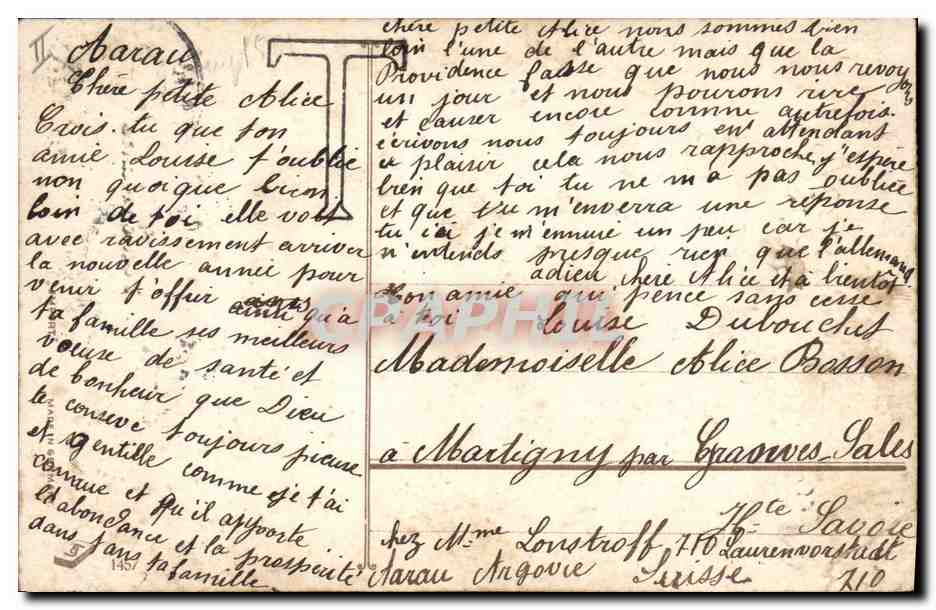 II
Aarau
T
Chère petite Alice
Crois-tu que ton
amie Louise t'oublie
non quoique bien
loin de toi elle voit
avec ravissement arriver
la nouvelle année pour
venir t'offrir ainsi qu'à
ta famille ses meilleurs
vœux de santé et
de bonheur que Dieu
te conseve toujours pieuse
et gentille comme je t'ai
connue et qu'il apporte
l'abondance et la prospérité
dans ta famille
chère petite Alice nous sommes bien
loin l'une de l'autre mais que la
Providence fasse que nous nous revoyons
un jour et nous pourons rire
et causer encore comme autrefois.
écrivons nous toujours en attendant
ce plaisir cela nous rapproche, j'espère
bien que toi tu ne m'a pas oubliée
et que tu m'enverra une réponse
ici je m'ennuie un peu car je
n'entends presque rien que l'allemand
adieu chère Alice et à bientôt
Ton amie qui pence sans cesse
à toi Louise Dubouchet
CPAPHIL
Mademoiselle Alice Bosson
à Martigny par Cranves-Sales
Hte Savoie
chez Mme Lonstroff 710 Laurenvorstadt
Aarau Argovie Suisse 710
MADE IN GERM
1457